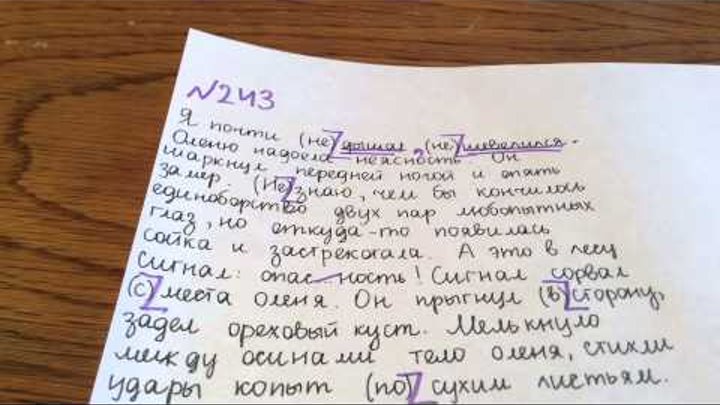 №243
Я почти (не) дышал, (не) шевелился.
Оленю надоела неясность. Он
шаркнул передней ногой и опять
замер (Не) знаю, чем бы кончилось
единоборство двух пар любопытных
глаз, но откуда-то появилась
сойка и застрекотала. А это в лесу
сигнал: опасность! Сигнал сорвал
(с) места оленя. Он прыгнул (в) сторону,
задел ореховый куст. Мелькнуло
между осинами тело оленя, стихли
удары копыт (по) сухим листьям.